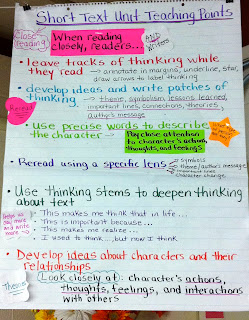 Short Text Unit Teaching Points
Close reading
When reading closely, readers...
AND Writers
• leave tracks of thinking while
they read → annotate in margins, underline, star,
draw arrows to label thinking
• develop ideas and write patches of
thinking → theme, symbolism, lessons learned,
important lines, connections, theories,
author's message
Reread
• use precise words to describe
the character → Pay close attention
to character's actions,
thoughts, and feelings
• Reread using a specific lens → symbols
theme/author's message
important lines
character change
• Use thinking stems to deepen thinking
about text
Helps us
say more
and write
more →
- This makes me think that in life...
- This is important because...
- This makes me realize...
- I used to think... but now I think
• Develop ideas about characters and their
relationships
Theme
Look closely at: character's actions,
thoughts, feelings, and interactions
with others